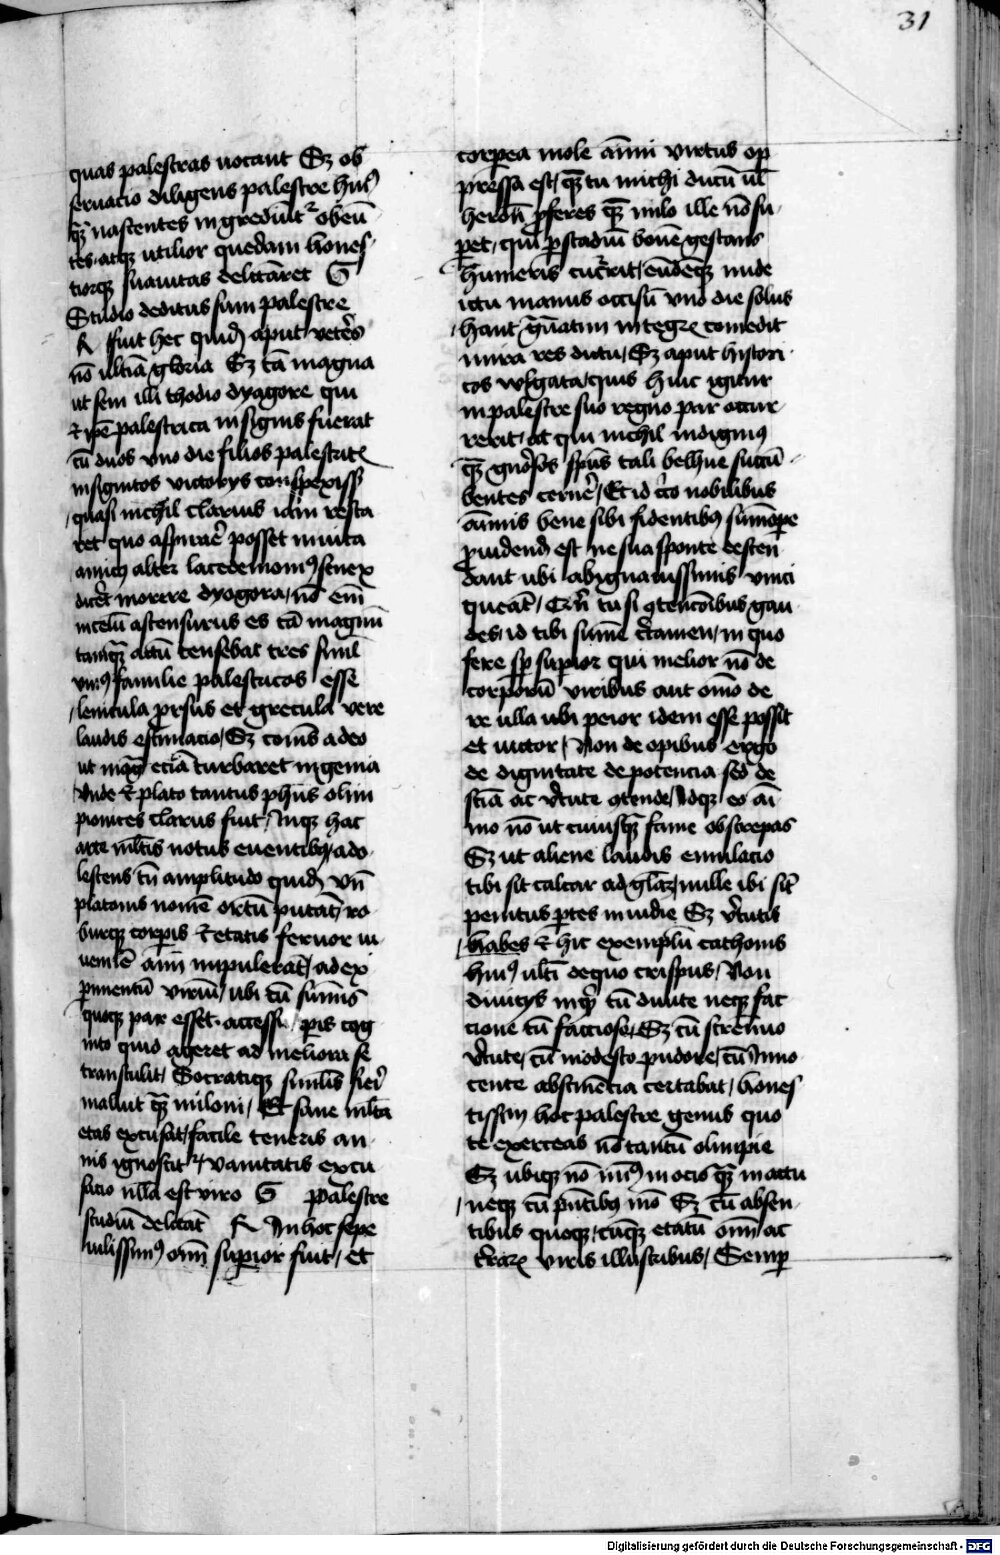 31
quas palestras uocant Sꝫ ob
seruacio diligens palestre huiꝰ
qꝫ nascentes ingrediūtᷣ obeū
tes atqꝫ utilior quedam hones
tiorqꝫ suauitas delectaret G
Studio deditus sum palestre
R fuit hec quidē aput veteꝝs
nō ultīa gloria Sꝫ tā magna
ut seni illi rhodio dyagore qui
⁊ ip̄e palestrica insignis fuerat
cū duos vno die filios palestrite
insignitos victorys conspexissꝫ
quasi nichil clarius iam resta
ret quo aspirare posset inuita
amicꝰ alter lacedemoniꝰ senex
dicēt morere dyogora nō em̄
in celū ascensurus es tā magnū
tamqꝫ actū censebat tres simul
vniꝰ familie palestricos esse
lenicula prsus et grecula vere
laudis estimacio Sꝫ comūs adeo
ut mag ecīa turbaret ingenia
vnde ⁊ plato tantus ph̄us olim
pionices clarus fuit Inqꝫ hac
arte ml̄tis notus euentibꝫ ado
lescens tn̄ amplitudo quidē vn̄
platonis nomē ortū putāt ro
burqꝫ corpis ⁊ etatis feruor iu
uenilē aīm impulerat ad exꝑ
ꝑimentū virium ubi cū sum̄is
quoqꝫ par esset accessu ꝑis cog
nito quid ageret ad meliora se
transtulit Socratiqꝫ similis fieri
maluit qꝫ miloni Et sane ml̄ta
etas excusat facile teneris an
nis ignoscitᷣ vanitatis excu
sacio nulla est viro G palestre
studiū delectāt R In hoc sepe
uilissimꝰ om̄ suꝑior fuit et
corpea mole animi virtus op
pressa est qꝫ tu michi ducū ul̄
heroū ꝓferes qꝫ milo ille nō su
ꝑet qui ꝑ stadiū bouē gestans
humeris cucurrit eundēqꝫ nude
ictu manus occisū vno die solus
haut grauatim integrꝫ comedit
mira res dictu Sꝫ aput histori
cos vulgata quis huic igitur
in palestre suo regno par occur
rerit at qui nichil indignius
qꝫ gnosos spūs tali belhue succū
bentes cerner Et id circo nobilibus
animis bene sibi fidentibꝫ sumoꝑe
ꝓuidend est ne sua sponte descen
dant ubi ab ignauissimis vinci
queāt Qr̄ tu si ꝯtencōibus gau
des id tibi sume certamen in quo
fere sꝑ suꝑior qui melior nō de
corporū viribus aut om̄o de
re ulla ubi peior idem esse possit
et uictor Non de opibus ergo
de dignitate de potencia sed de
sc̄ia ac v̄tute ꝯtende Idqꝫ eo ai
mo nō ut cuiusqꝫ fame obstrepas
Sꝫ ut aliene laudis emulacio
tibi sit calcar ad gl̄aꝫ nulle ibi sīt
penitus partes inuidie Sꝫ v̄tutis
habes ⁊ hic exemplū cathonis
huiꝰ ultī de quo crispus Non
diuicijs inqͥ cū diuite neqꝫ fac
cione cū faccioso Sꝫ cū strenuo
v̄tute cū modesto pudore cū Inno
cente abstinēcia certabat hones
tissim hoc palestre genus quo
te exerceas nō tantū olimpie
Sꝫ ubiqꝫ nō minꝰ in ocio qꝫ in actu
neqꝫ cū pn̄tibꝫ mo Sꝫ cū absen
tibus quoqꝫ cūqꝫ etatū om̄ ac
t̄rarꝫ viris illustribus Semꝑ
Digitalisierung gefördert durch die Deutsche Forschungsgemeinschaft - DFG